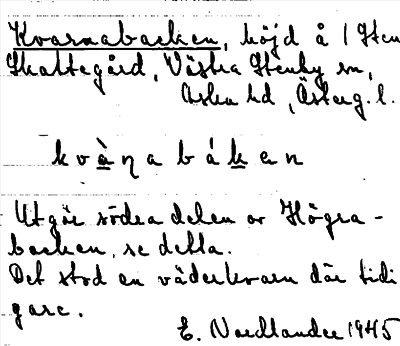 Kvarnabacken, höjd å 1 Sten
Skattegård, Västra Stenby sn,
Aska hd, Österg. l.
kvànabáken
Utgör södra delen av Högra-
backen, se detta.
Det stod en väderkvarn där tidi
gare.
E. Nordlander 1945